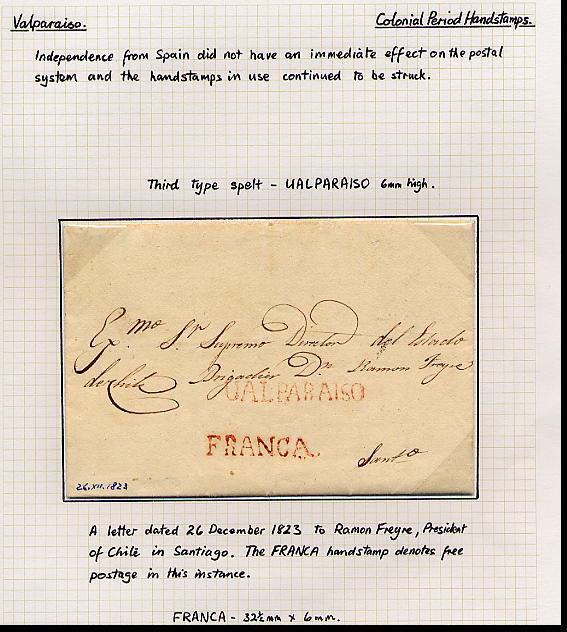 Valparaiso.
Colonial Period Handstamps.
Independence from Spain did not have an immediate effect on the postal
system and the handstamps in use continued to be struck.
Third type spelt - UALPARAISO 6mm high.
Ex.mo Sr Supremo Director del Estado
de Chile Brigadier Dn Ramon Freyre
UALPARAISO
FRANCA.
Santo
26.XII.1823
A letter dated 26 December 1823 to Ramon Freyre, President
of Chile in Santiago. The FRANCA handstamp denotes free
postage in this instance.
FRANCA - 32½mm x 6mm.